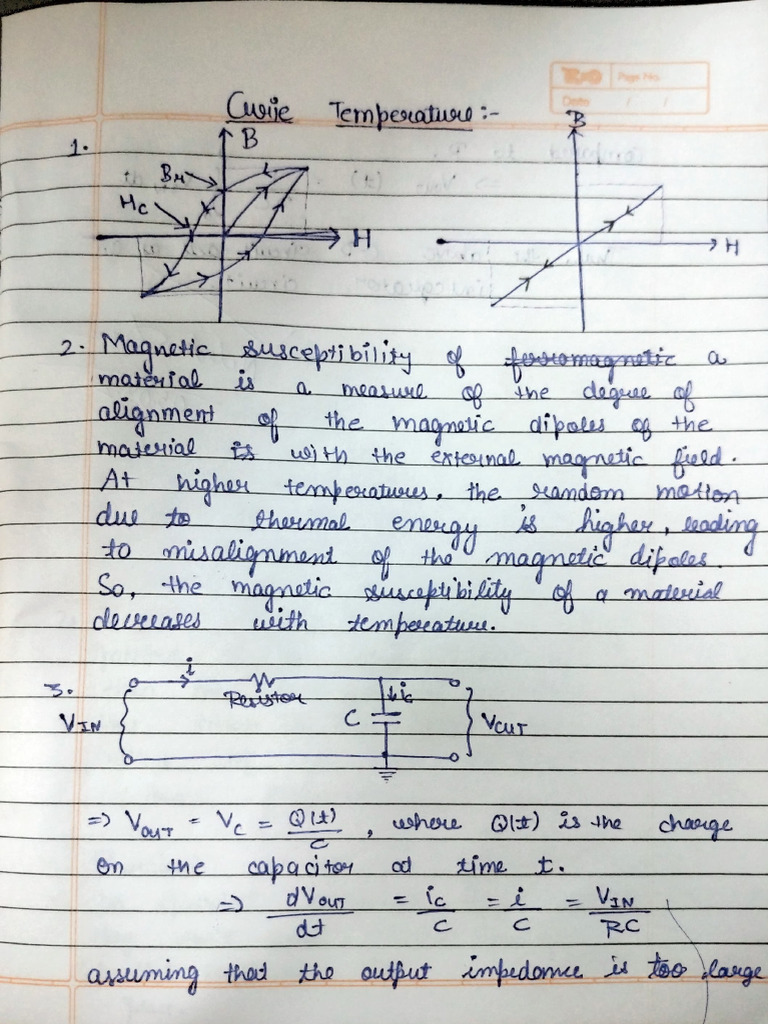 Page No.
Date / /
Curie Temperature:-
1.
B
B
BH
HC
H
H
2. Magnetic susceptibility of ferromagnetic a
material is a measure of the degree of
alignment of the magnetic dipoles of the
material is with the external magnetic field.
At higher temperatures, the random motion
due to thermal energy is higher, leading
to misalignment of the magnetic dipoles.
So, the magnetic susceptibility of a material
decreases with temperature.
3.
i
Resistor
ic
VIN
C
VOUT
=> VOUT = VC = Q(t)/C , where Q(t) is the charge
on the capacitor at time t.
=> dVOUT/dt = iC/C = i/C = VIN/RC
assuming that the output impedance is too large